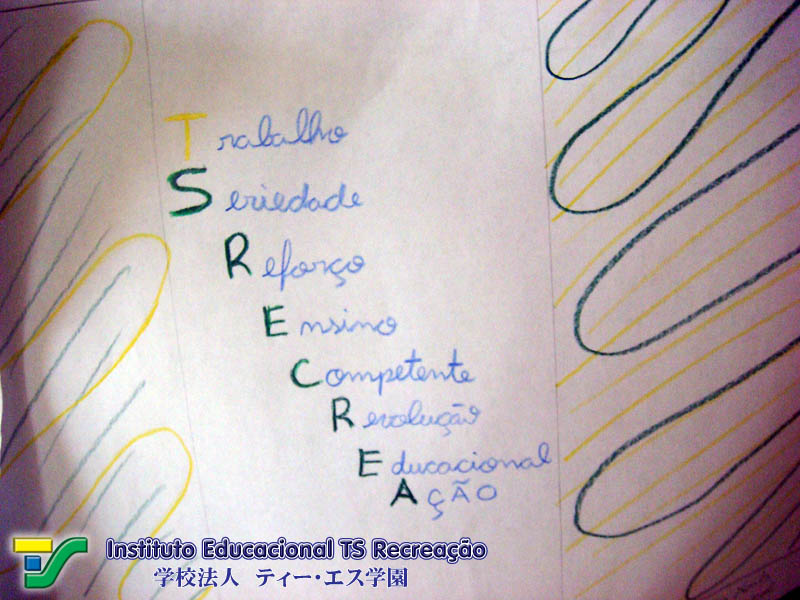 Trabalho
Seriedade
Reforço
Ensino
Competente
Revolução
Educacional
AÇÃO
TS Instituto Educacional TS Recreação
学校法人 ティー・エス学園